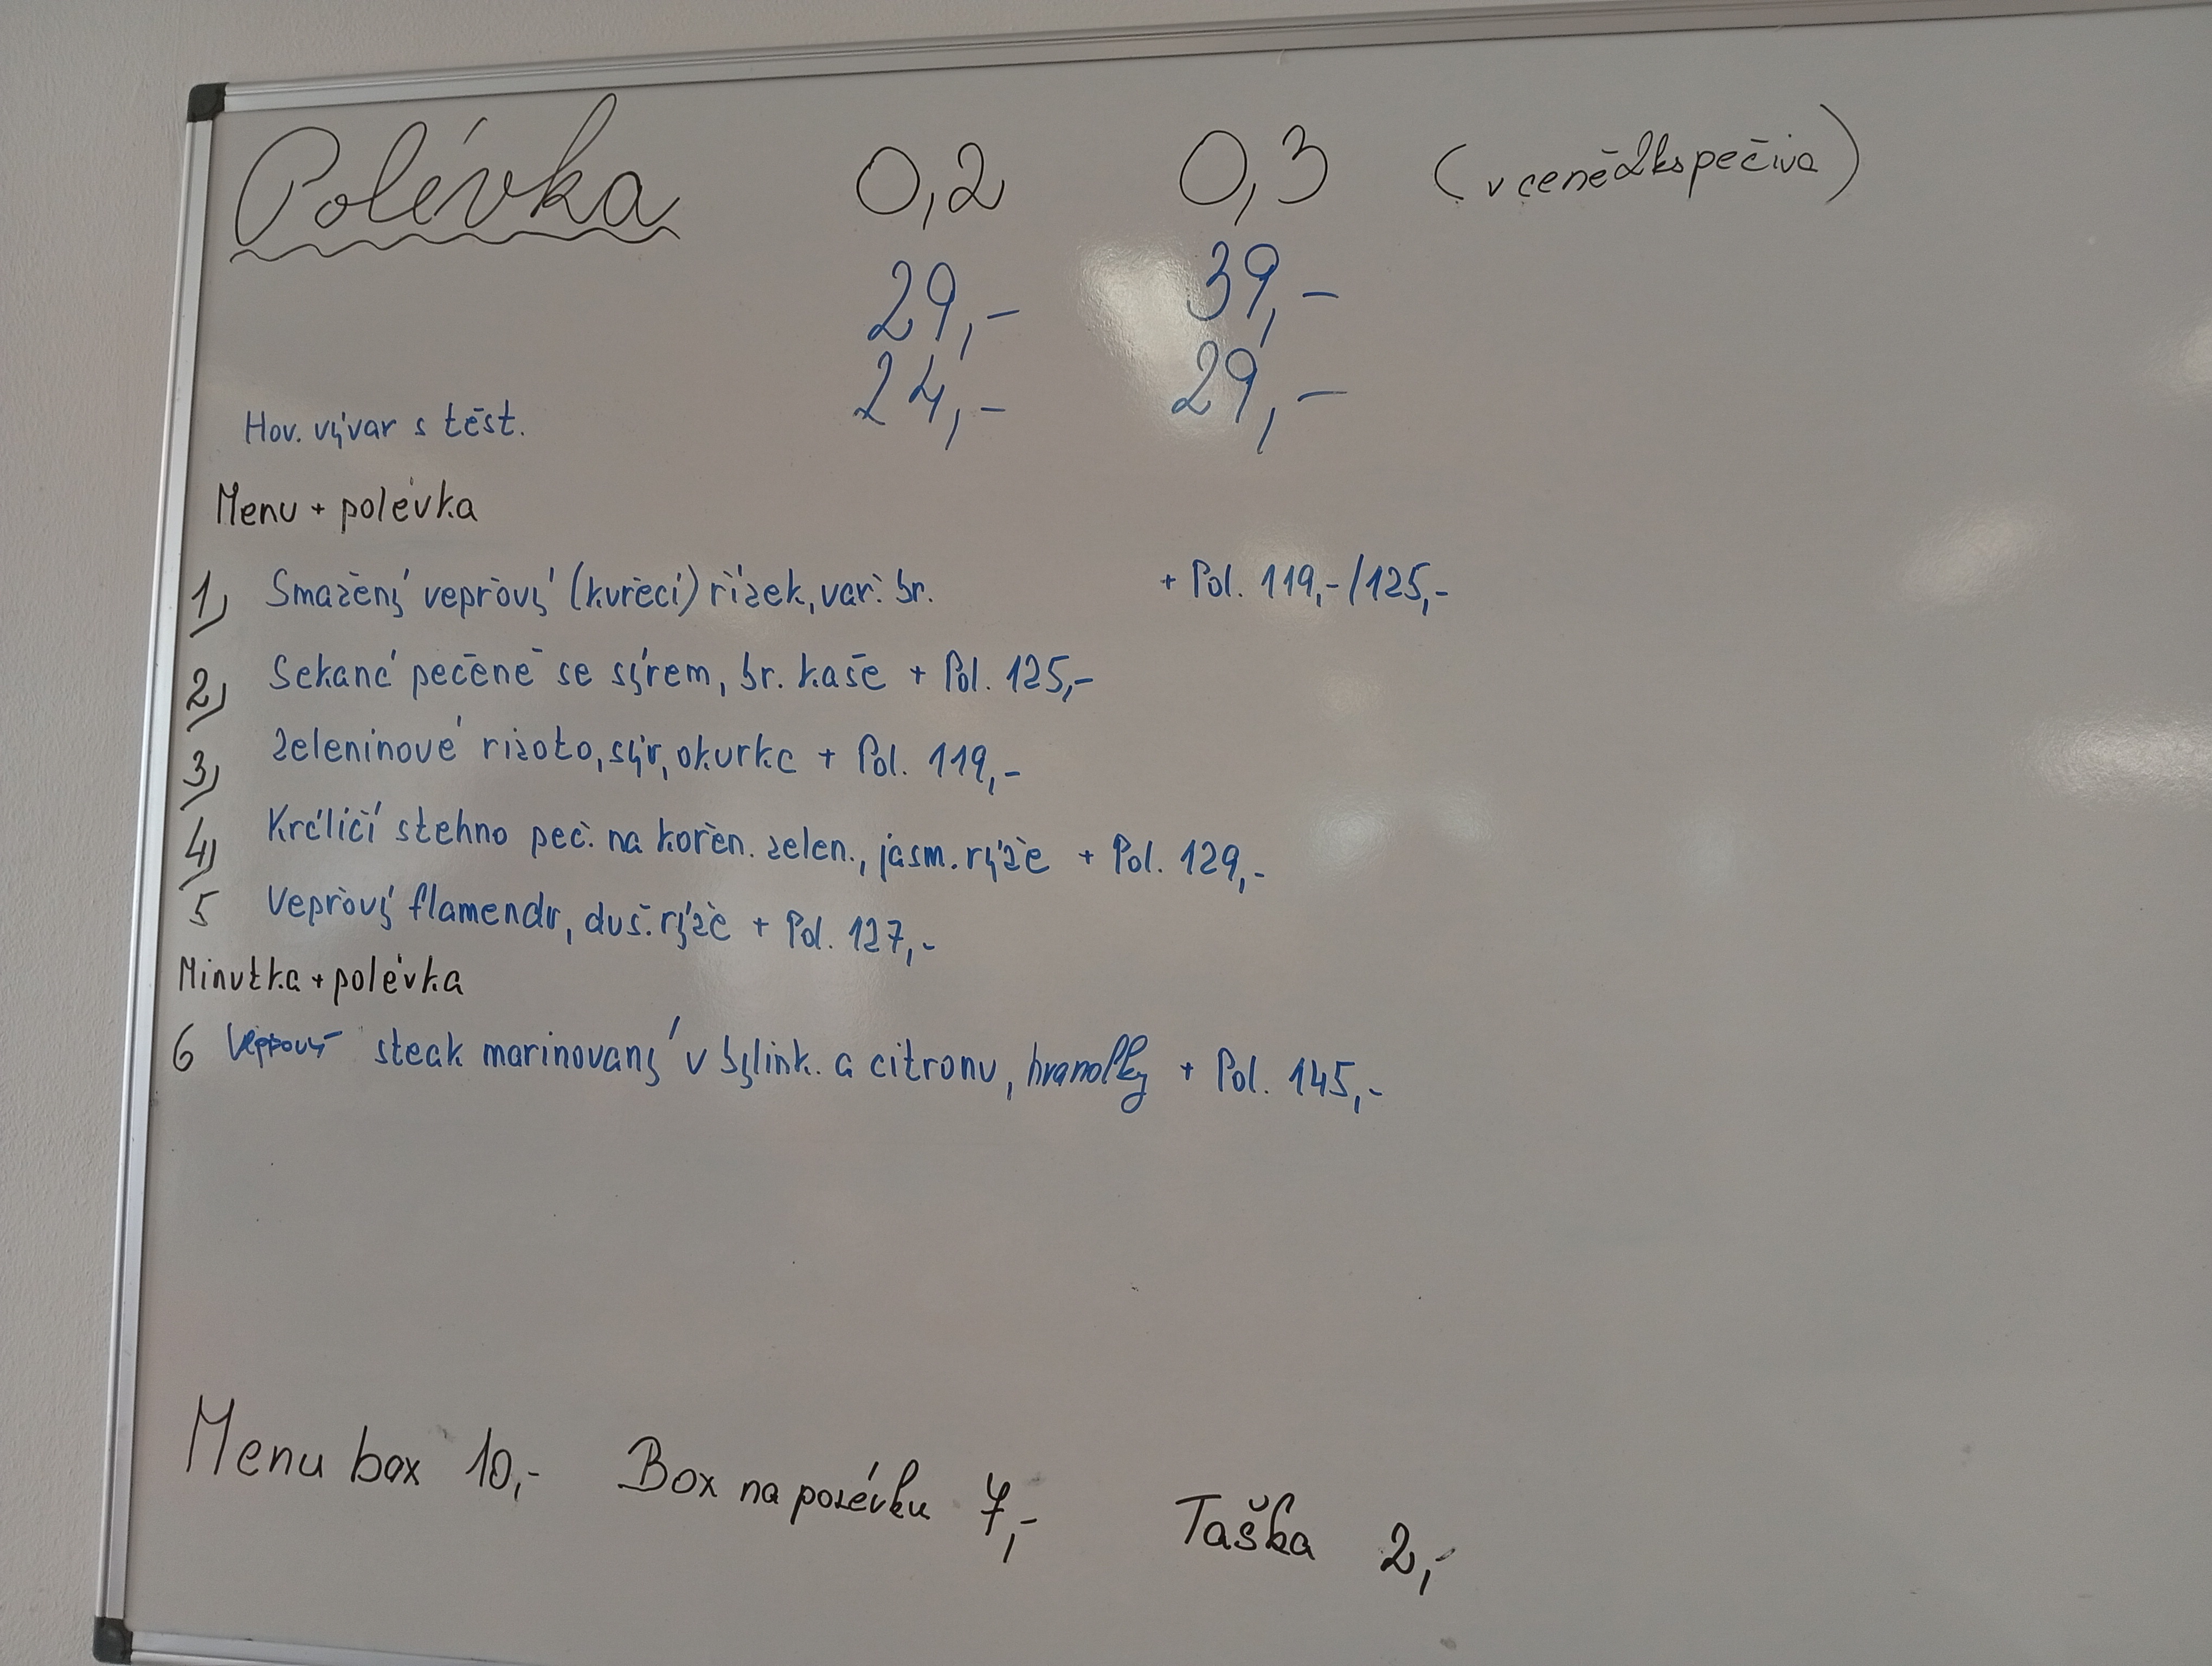 Polévka 0,2 0,3 (v ceně 2ks pečiva)
29,- 39,-
24,- 29,-
Hov. vývar s těst.
Menu + polévka
1) Smažený vepřový (kuřecí) řízek, vař. br. + Pol. 119,-/125,-
2) Sekaná pečeně se sýrem, br. kaše + Pol. 125,-
3) Zeleninové rizoto, sýr, okurka + Pol. 119,-
4) Králičí stehno peč. na kořen. zelen., jasm. rýže + Pol. 129,-
5 Vepřový flamendr, duš. rýže + Pol. 127,-
Minutka + polévka
6 Vepřový steak marinovaný v bylink. a citronu, hranolky + Pol. 145,-
Menu box 10,- Box na polévku 7,- Taška 2,-